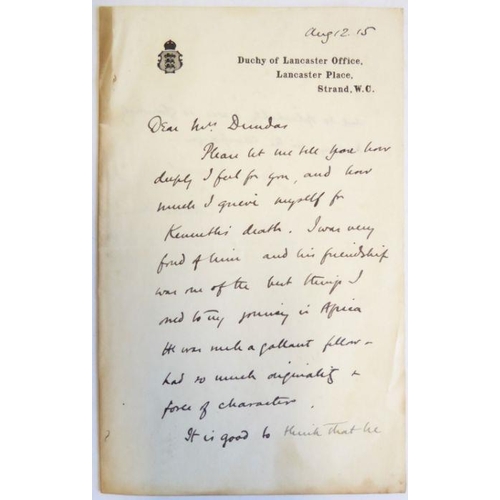 Aug 12 15
Duchy of Lancaster Office,
Lancaster Place,
Strand, W.C.
Dear Mrs Dundas
Please let me tell you how
deeply I feel for you, and how
much I grieve myself for
Kenneth's death. I was very
fond of him and his friendship
was one of the best things I
owed to my journey in Africa
He was such a gallant fellow -
had so much originality &
force of character.
It is good to think that he